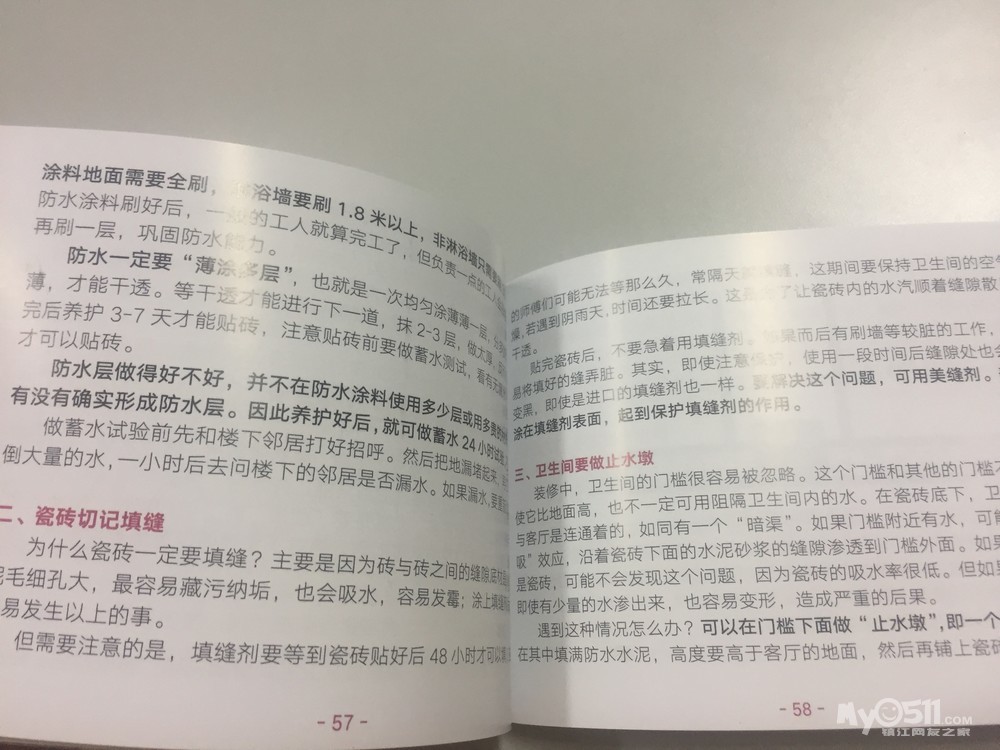 涂料地面需要全刷，浴墙要刷1.8米以上，非淋浴墙只需要
防水涂料刷好后，一般的工人就算完工了，但负责一点的工人
再刷一层，巩固防水能力。
防水一定要“薄涂多层”，也就是一次均匀涂薄薄一层，
薄，才能干透。等干透才能进行下一道，抹2-3层，做大
完后养护3-7天才能贴砖，注意贴砖前要做蓄水测试，看有无
才可以贴砖。
防水层做得好不好，并不在防水涂料使用多少层或用多贵的
有没有确实形成防水层。因此养护好后，就可做蓄水24小时试
做蓄水试验前先和楼下邻居打好招呼。然后把地漏堵起来，
倒大量的水，一小时后去问楼下的邻居是否漏水。如果漏水，要重
二、瓷砖切记填缝
为什么瓷砖一定要填缝？主要是因为砖与砖之间的缝隙底
毛细孔大，最容易藏污纳垢，也会吸水，容易发霉；涂上填缝
易发生以上的事。
但需要注意的是，填缝剂要等到瓷砖贴好后48小时才可以
- 57 -
的师傅们可能无法等那么久，常隔天，这期间要保持卫生间的空气
燥，若遇到阴雨天，时间还要拉长。这是为了让瓷砖内的水汽顺着缝隙散
干透。
贴完瓷砖后，不要急着用填缝剂。如果而后有刷墙等较脏的工作，
易将填好的缝弄脏。其实，即使注意保护，使用一段时间后缝隙处也会
变黑，即使是进口的填缝剂也一样。要解决这个问题，可用美缝剂。
涂在填缝剂表面，起到保护填缝剂的作用。
三、卫生间要做止水墩
装修中，卫生间的门槛很容易被忽略。这个门槛和其他的门槛不
使它比地面高，也不一定可用阻隔卫生间内的水。在瓷砖底下，卫
与客厅是连通着的，如同有一个“暗渠”。如果门槛附近有水，可能
吸”效应，沿着瓷砖下面的水泥砂浆的缝隙渗透到门槛外面。如果
是瓷砖，可能不会发现这个问题，因为瓷砖的吸水率很低。但如果
即使有少量的水渗出来，也容易变形，造成严重的后果。
遇到这种情况怎么办？可以在门槛下面做“止水墩”，即一个
在其中填满防水水泥，高度要高于客厅的地面，然后再铺上瓷砖
- 58 -
My0511.COM
镇江网友之家